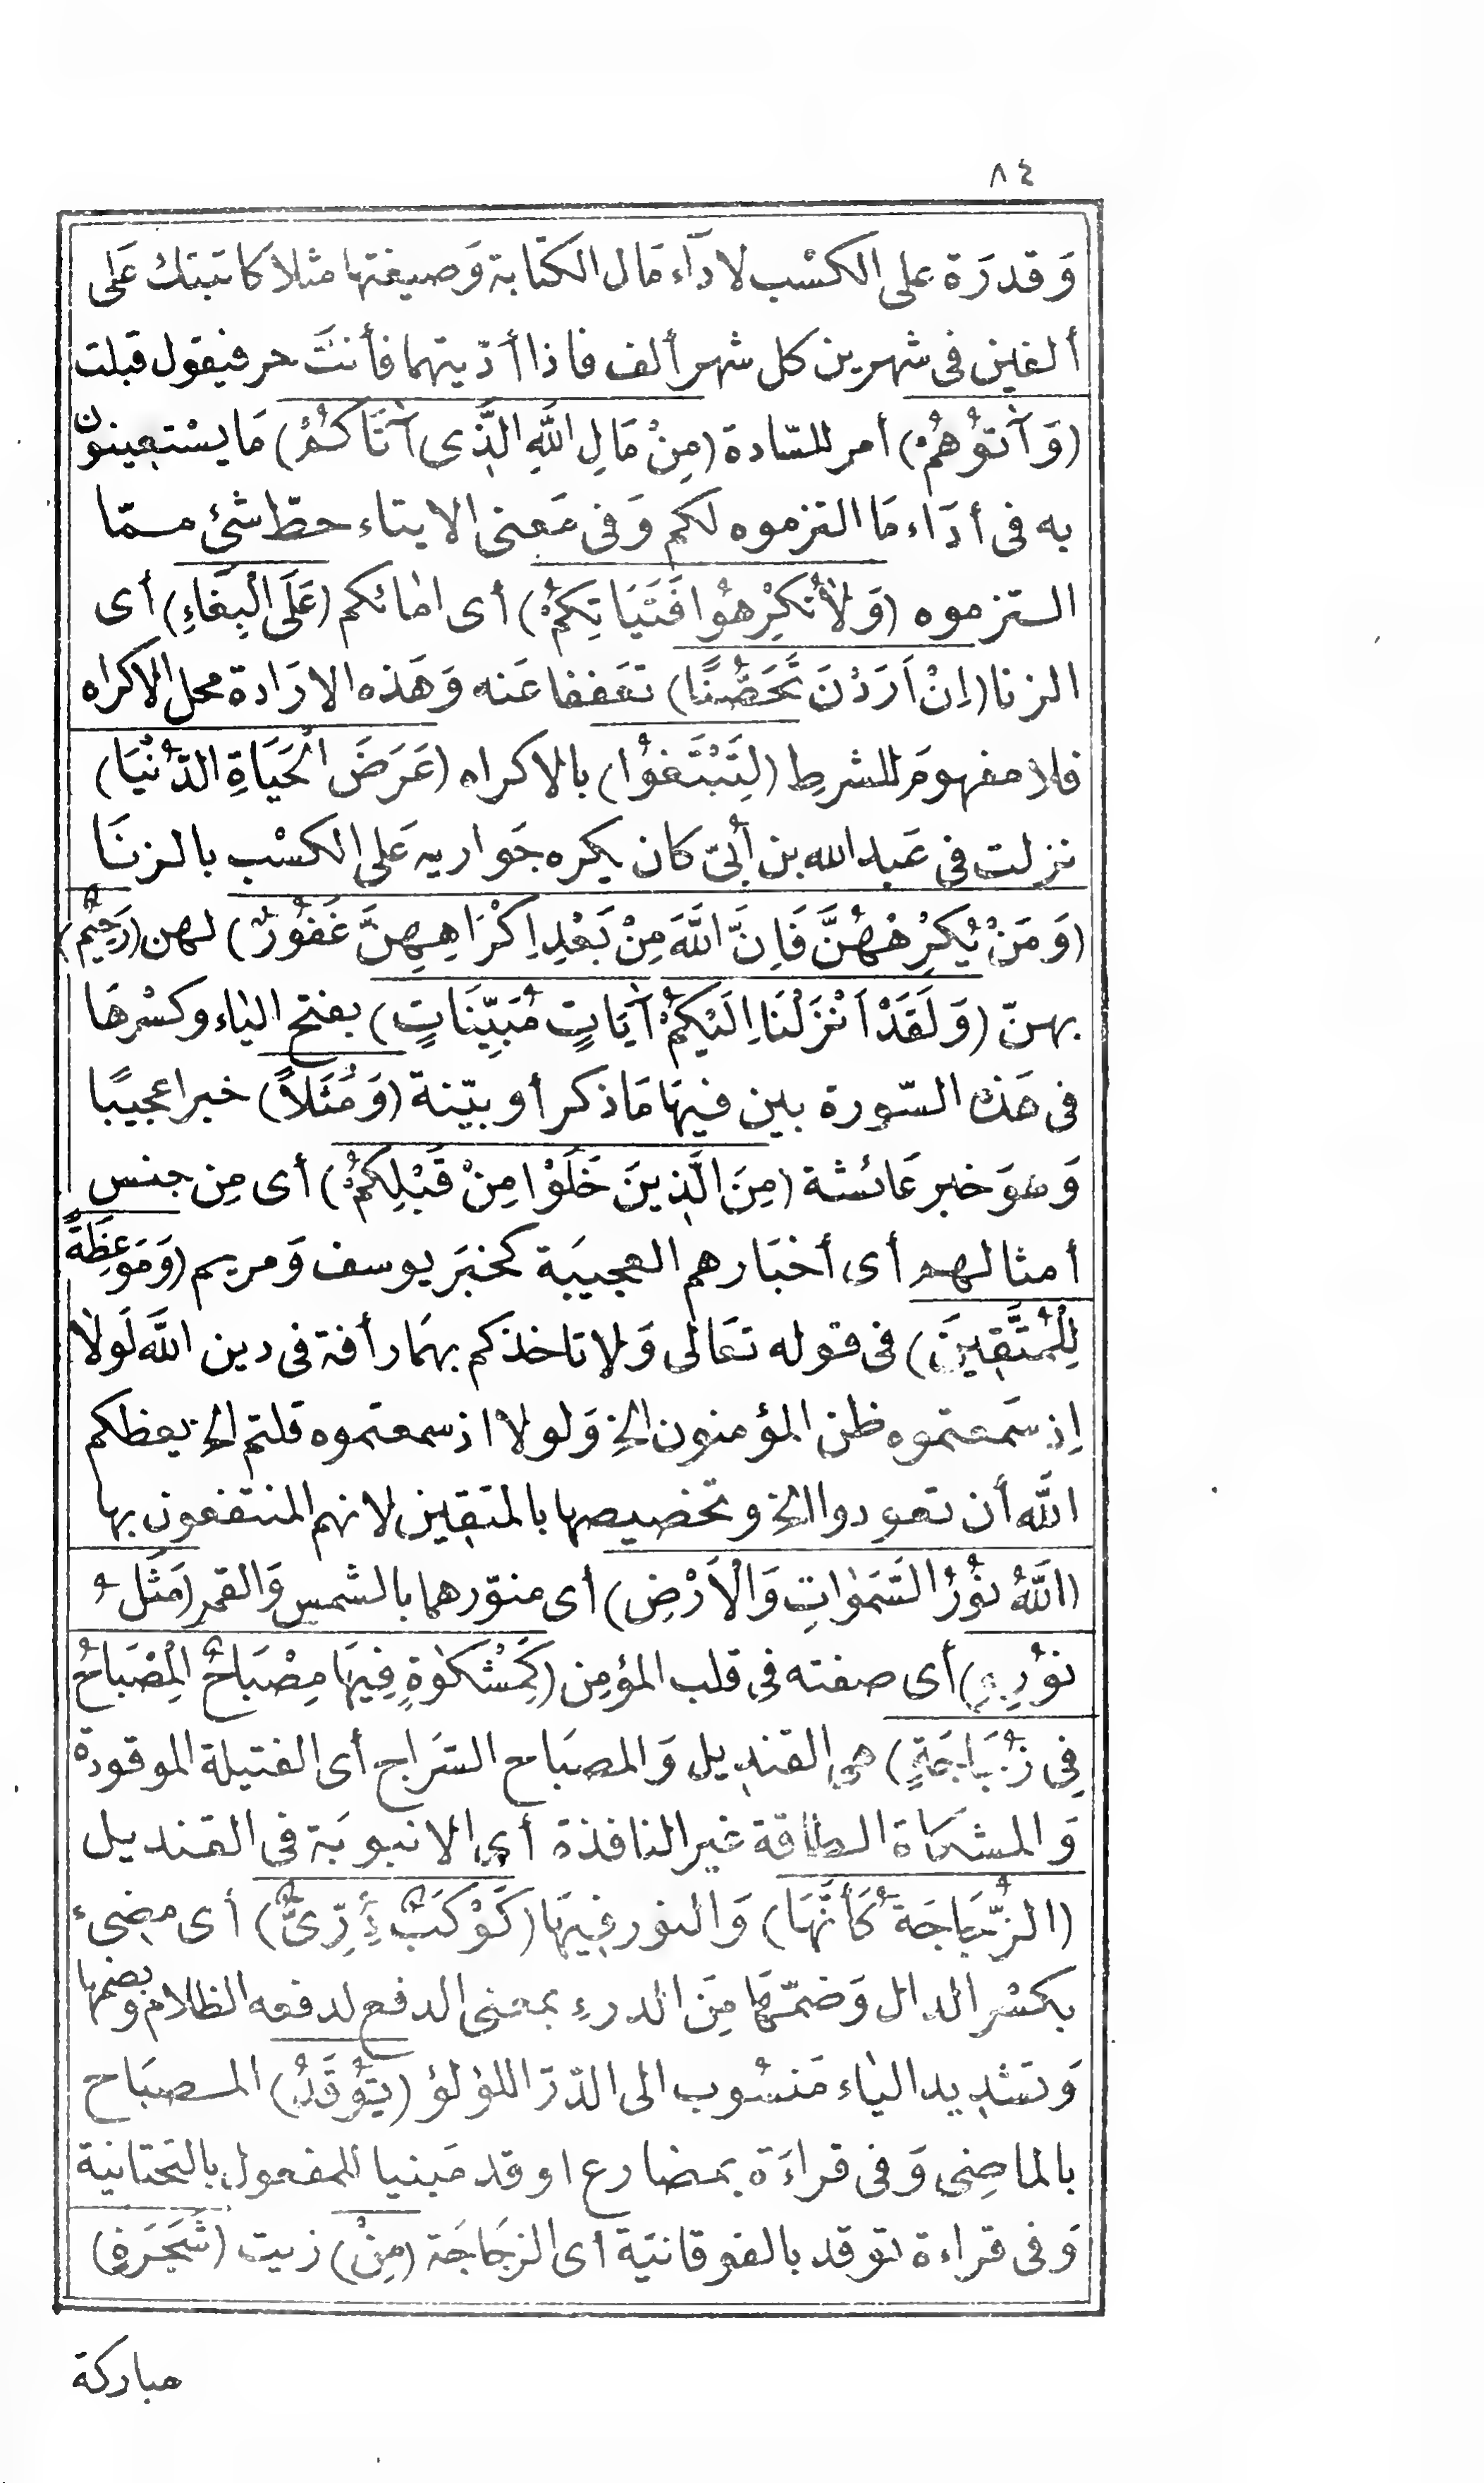 ٨٤
وَقدرَة على الكسْب لادآء مَال الكتابة وَصيغتها مثلا كاتبتك عَلى
ألفين فى شهرين كل شهر ألف فاذا أدّيتهما فأنتَ حر فيقول قبلت
(وَآتُوْهُمْ) أمر للسّادة (مِنْ مَالِ اللَّهِ الَّذِى آتَاكُمْ) مَا يسْتعينون
به فى أدَاء مَا التزموه لكم وَفى مَعنى الايتاء حطّ شئ مـمّا
التزموه (وَلاَ تُكْرِهُوا فَتَيَاتِكُمْ) أى امائكم (عَلَى الْبِغَاءِ) أى
الزنا (اِنْ اَرَدْنَ تَحَصُّنًا) تعَففا عَنه وَهَذه الارَادة محل الاكراه
فلا مفهومَ للشرطِ (لِتَبْتَغُوْا) بالاكراه (عَرَضَ الْحَيَاةِ الدُّنْيَا)
نزلت فى عَبد الله بن أُبىّ كان يكره جَواريه عَلى الكسْب بالزنَا
(وَمَنْ يُكْرِهْهُنَّ فَاِنَّ اللَّهَ مِنْ بَعْدِ اِكْرَاهِهِنَّ غَفُوْرٌ) لهن (رَحِيْمٌ)
بهنّ (وَلَقَدْ اَنْزَلْنَا اِلَيْكُمْ آيَاتٍ مُبَيِّنَاتٍ) بفتح الياء وكسْرهَا
فى هَذه السّورة بين فيهَا مَا ذكر أو بيّنة (وَمَثَلاً) خبرا عجيبًا
وَهوَ خبر عَائشة (مِنَ الَّذِينَ خَلَوْا مِنْ قَبْلِكُمْ) أى مِن جنس
أمثالهم أى أخبَارهم العجيبَة كخبَر يوسف وَمريم (وَمَوْعِظَةً
لِلْمُتَّقِينَ) فى قوله تعَالى وَلا تاخذكم بهمَا رأفة فى دين اللَّه لَولا
اِذ سَمعتموه ظن المؤمنون الخ وَلولا اذ سمعتموه قلتم الخ يعظكم
اللَّه أن تعودوا الخ وتخصيصها بالمتقين لانهم المنتفعون بها
(اَللَّهُ نُوْرُ السَّمٰوَاتِ وَالْاَرْضِ) أى منوّرهما بالشمس وَالقمر (مَثَلُ
نُوْرِهِ) أى صفته فى قلب المؤمِن (كَمِشْكٰوةٍ فِيهَا مِصْبَاحٌ الْمِصْبَاحُ
فِى زُجَاجَةٍ) هى القنديل وَالمصبَاح السّرَاج أى الفتيلة الموقودة
وَالمشكاة الطاقة غير النافذة أى الانبوبَة فى القنديل
(الزُّجَاجَةُ كَأَنَّهَا) وَالنور فيهَا (كَوْكَبٌ دُِرِّىٌّ) أى مضىء
بكسْر الدال وَضمّهَا مِنَ الدرءِ بمعنى الدفع لدفعه الظلام وبضمها
وَتشديد الياء مَنسُوب الى الدّرّ اللؤلؤ (يُوْقَدُ) المصبَاح
بالماضِى وَفى قراءَة بمضارع اوقد مَبنيا للمفعول بالتحتانية
وَفى قراءة توقد بالفوقانيّة أى الزجَاجَة (مِنْ) زيت (شَجَرَةٍ)
مباركة